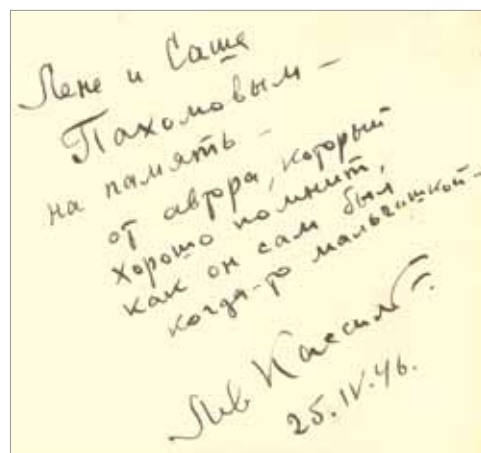 Лене и Саше
Пахомовым –
на память –
от автора, который
хорошо помнит,
как он сам был
когда-то мальчишкой –
Лев Кассиль.
25.IV.46.